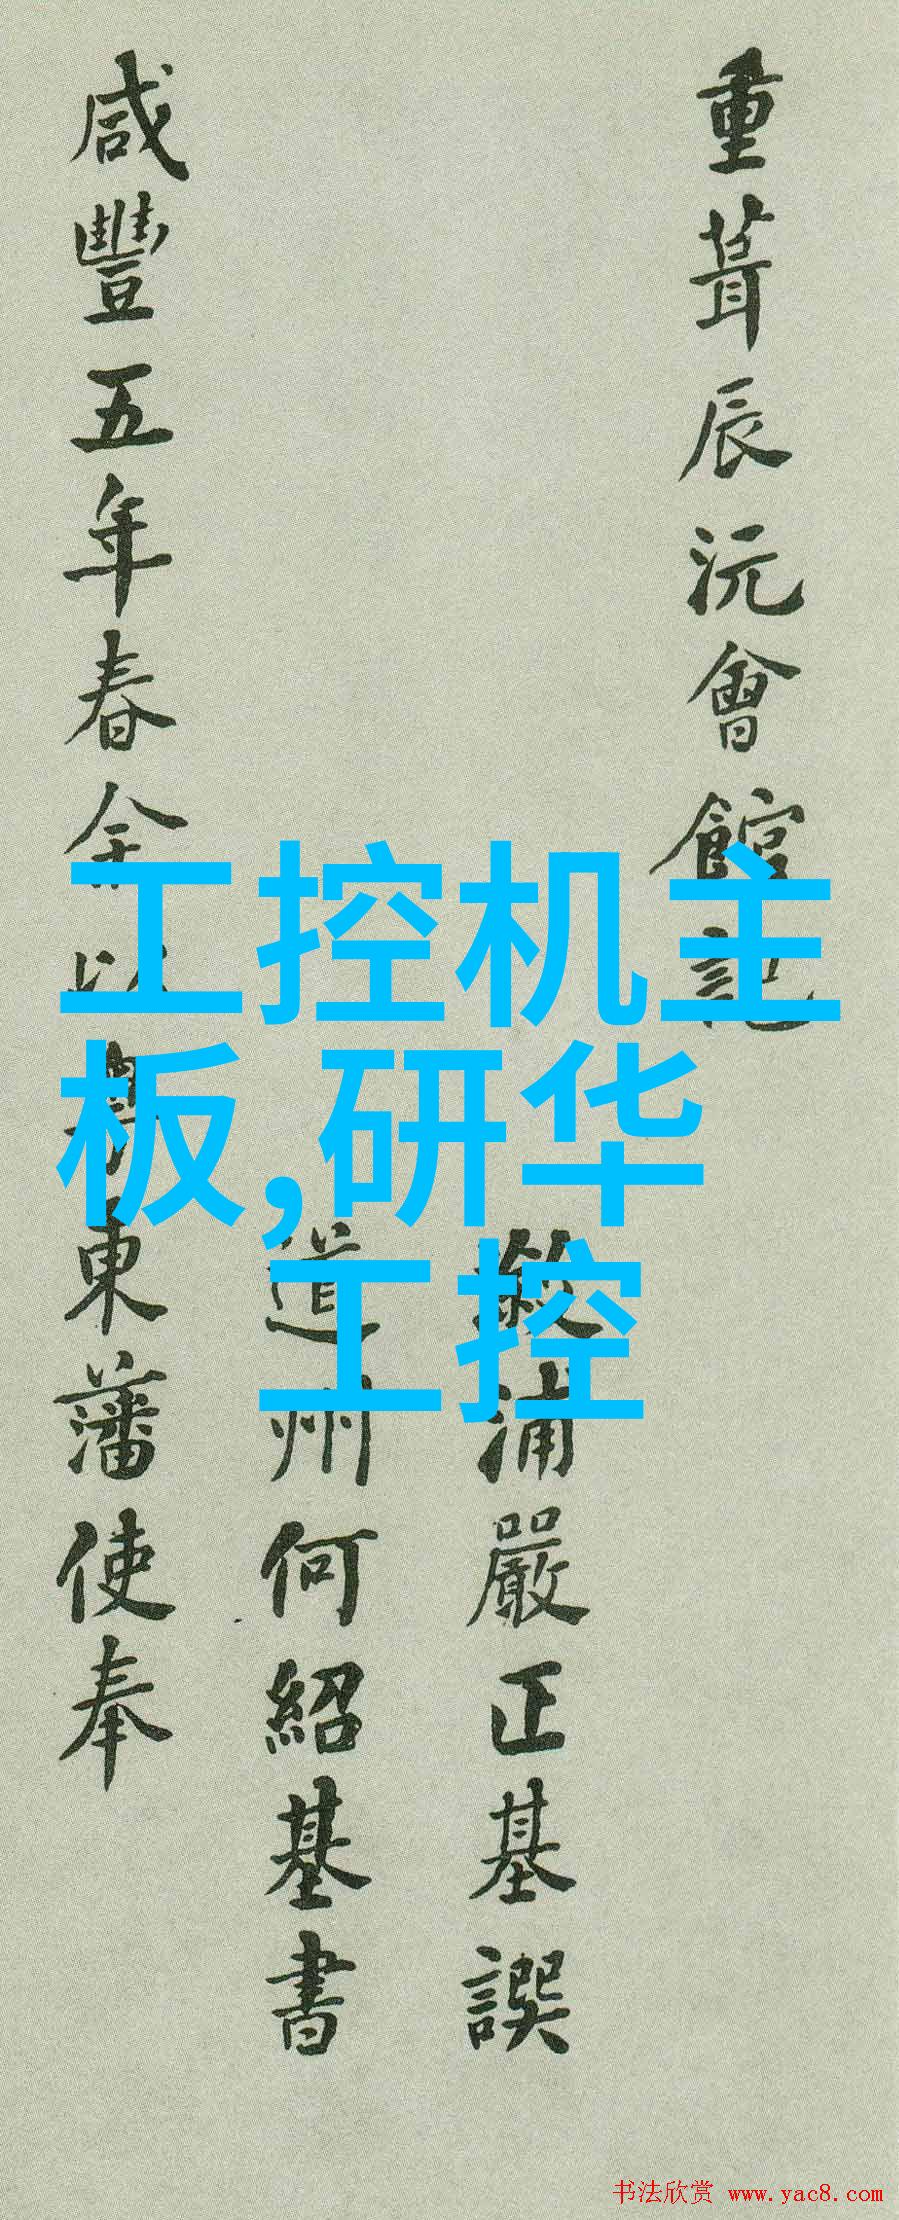 重葺辰沅會館記
漵浦嚴正基譔
道州何紹基書
咸豐五年春余以粵東藩使奉
工控机主
板,研华
工控
书法欣赏 www.yac8.com